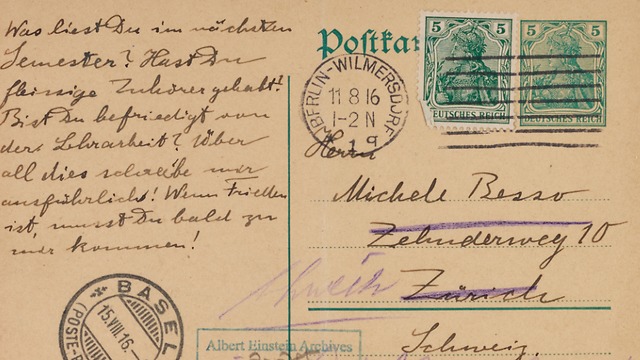 Was liest Du im nächsten
Semester? Hast Du
fleissige Zuhörer gehabt?
Bist Du befriedigt von
der Lehrarbeit? Über
all dies schreibe mir
ausführlich! Wenn Frieden
ist, musst Du bald zu
mir kommen!
Postkar
5 5
5 5
DEUTSCHES REICH
EUTSCHES REICH
BERLIN-WILMERSDORF
11 8 16
1-2 N
Herrn
Michele Besso
Zehnderweg 10
Zürich
Schweiz
BASEL
15.VIII.16
(POSTE-
Albert Einstein Archives